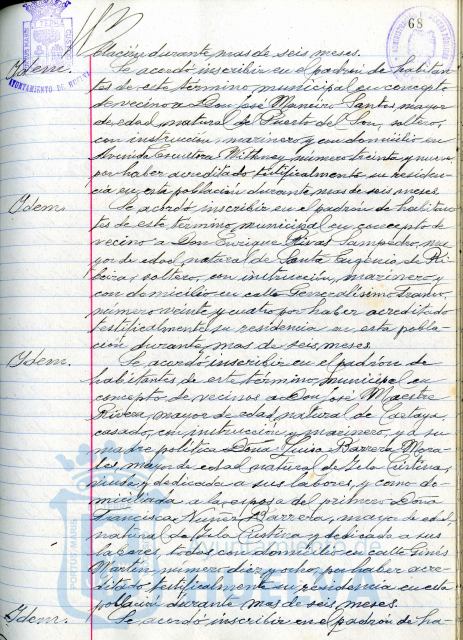 68
AYUNTAMIENTO DE HUELVA
blación durante mas de seis meses.
Idem. Se acordó inscribir en el padrón de habitan-
tes de este término municipal en concepto
de vecino a Don José Maneiro Santos mayor
de edad natural de Puerto del Son, soltero,
con instrucción, marinero y con domicilio en
Avenida Escultora Withney, numero treinta y nueve
por haber acreditado testificalmente su residen-
cia en esta población durante mas de seis meses.
Idem. Se acordó inscribir en el padrón de habitan-
tes de este término municipal en concepto de
vecino a Don Enrique Rivas Sampedro, ma-
yor de edad natural de Santa Eugenia de Ri-
beira, soltero, con instrucción, marinero y
con domicilio en calle Generalísimo Franco,
numero veinte y cuatro por haber acreditado
testificalmente su residencia en esta pobla-
ción durante mas de seis meses.
Idem. Se acordó inscribir en el padrón de
habitantes de este término municipal en
concepto de vecinos a Don José Maestre
Rivera, mayor de edad, natural de Cartaya
casado, con instrucción y marinero, a su
madre política Doña Luisa Barrera Mora-
les mayor de edad natural de Isla Cristina,
viuda y dedicada a sus labores, y como do-
miciliada a la esposa del primero Doña
Francisca Nuñez Barrera, mayor de edad,
natural de Isla Cristina y dedicada a sus
labores, todos con domicilio en calle Ginés
Martín numero diez y ocho, por haber acre-
ditado testificalmente su residencia en esta
población durante mas de seis meses.
Idem. Se acordó inscribir en el padrón de ha-